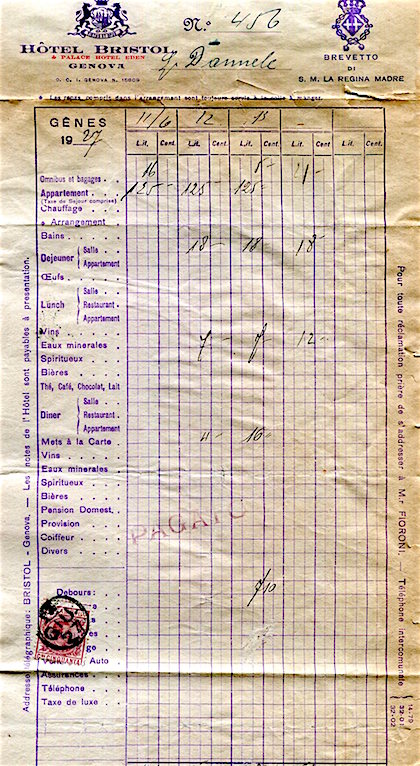 N.º 456
HÔTEL BRISTOL
& PALACE HOTEL EDEN
GENOVA
C. C. I. GENOVA N. 15809
BREVETTO
DI
S. M. LA REGINA MADRE
Les repas compris dans l'arrangement sont toujours servis à la salle à manger.
GÊNES
1927
11/6 12 13 –
Lit. Cent. Lit. Cent. Lit. Cent. Lit. Cent. Lit. Cent.
Omnibus et bagages 16
Appartement 125– 125– 125–
(Taxe de Sejour comprise)
Chauffage
Arrangement
Bains
Dejeuner Salle Appartement 18– 18– 18–
Œufs
Lunch Salle Restaurant Appartement
Vins
Eaux minerales 7– 12–
Spiritueux
Bières
Thé, Café, Chocolat, Lait
Diner Salle Restaurant Appartement
Mets à la Carte 16–
Vins
Eaux minerales
Spiritueux
Bières
Pension Domest.
Provision
Coiffeur
Divers
PAGATO
Debours:
Auto
Assurances
Téléphone
Taxe de luxe
Adresse télégraphique: BRISTOL - Genova. — Les notes de l'Hôtel sont payables à présentation.
Pour toute réclamation prière de s'addresser à M.r FIORONI. — Téléphone intercomunale
14-79
32-01
32-02